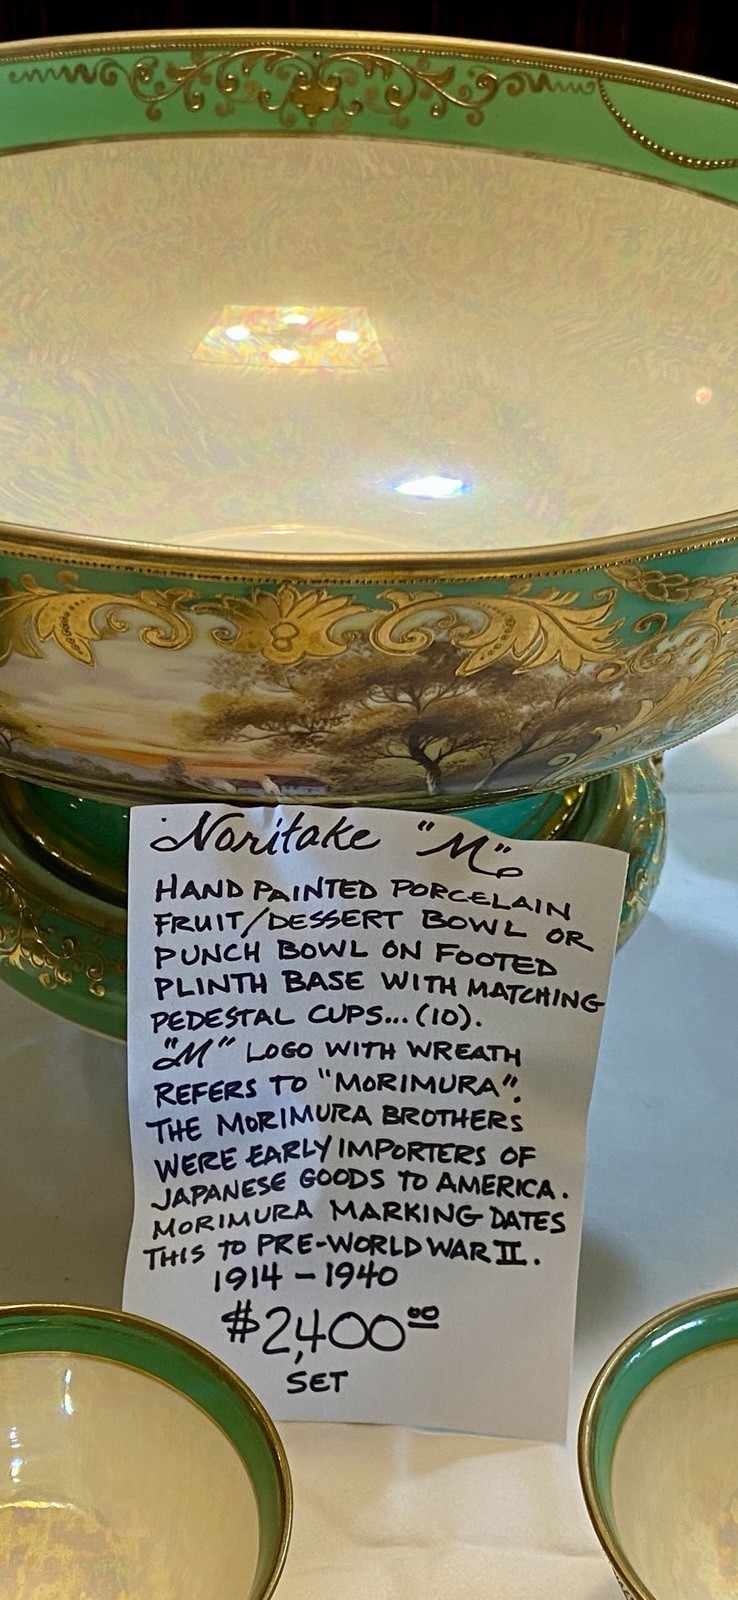 Noritake "M"
HAND PAINTED PORCELAIN
FRUIT/DESSERT BOWL OR
PUNCH BOWL ON FOOTED
PLINTH BASE WITH MATCHING
PEDESTAL CUPS...(10).
"M" LOGO WITH WREATH
REFERS TO "MORIMURA".
THE MORIMURA BROTHERS
WERE EARLY IMPORTERS OF
JAPANESE GOODS TO AMERICA.
MORIMURA MARKING DATES
THIS TO PRE-WORLD WAR II.
1914-1940
$2,400.00
SET